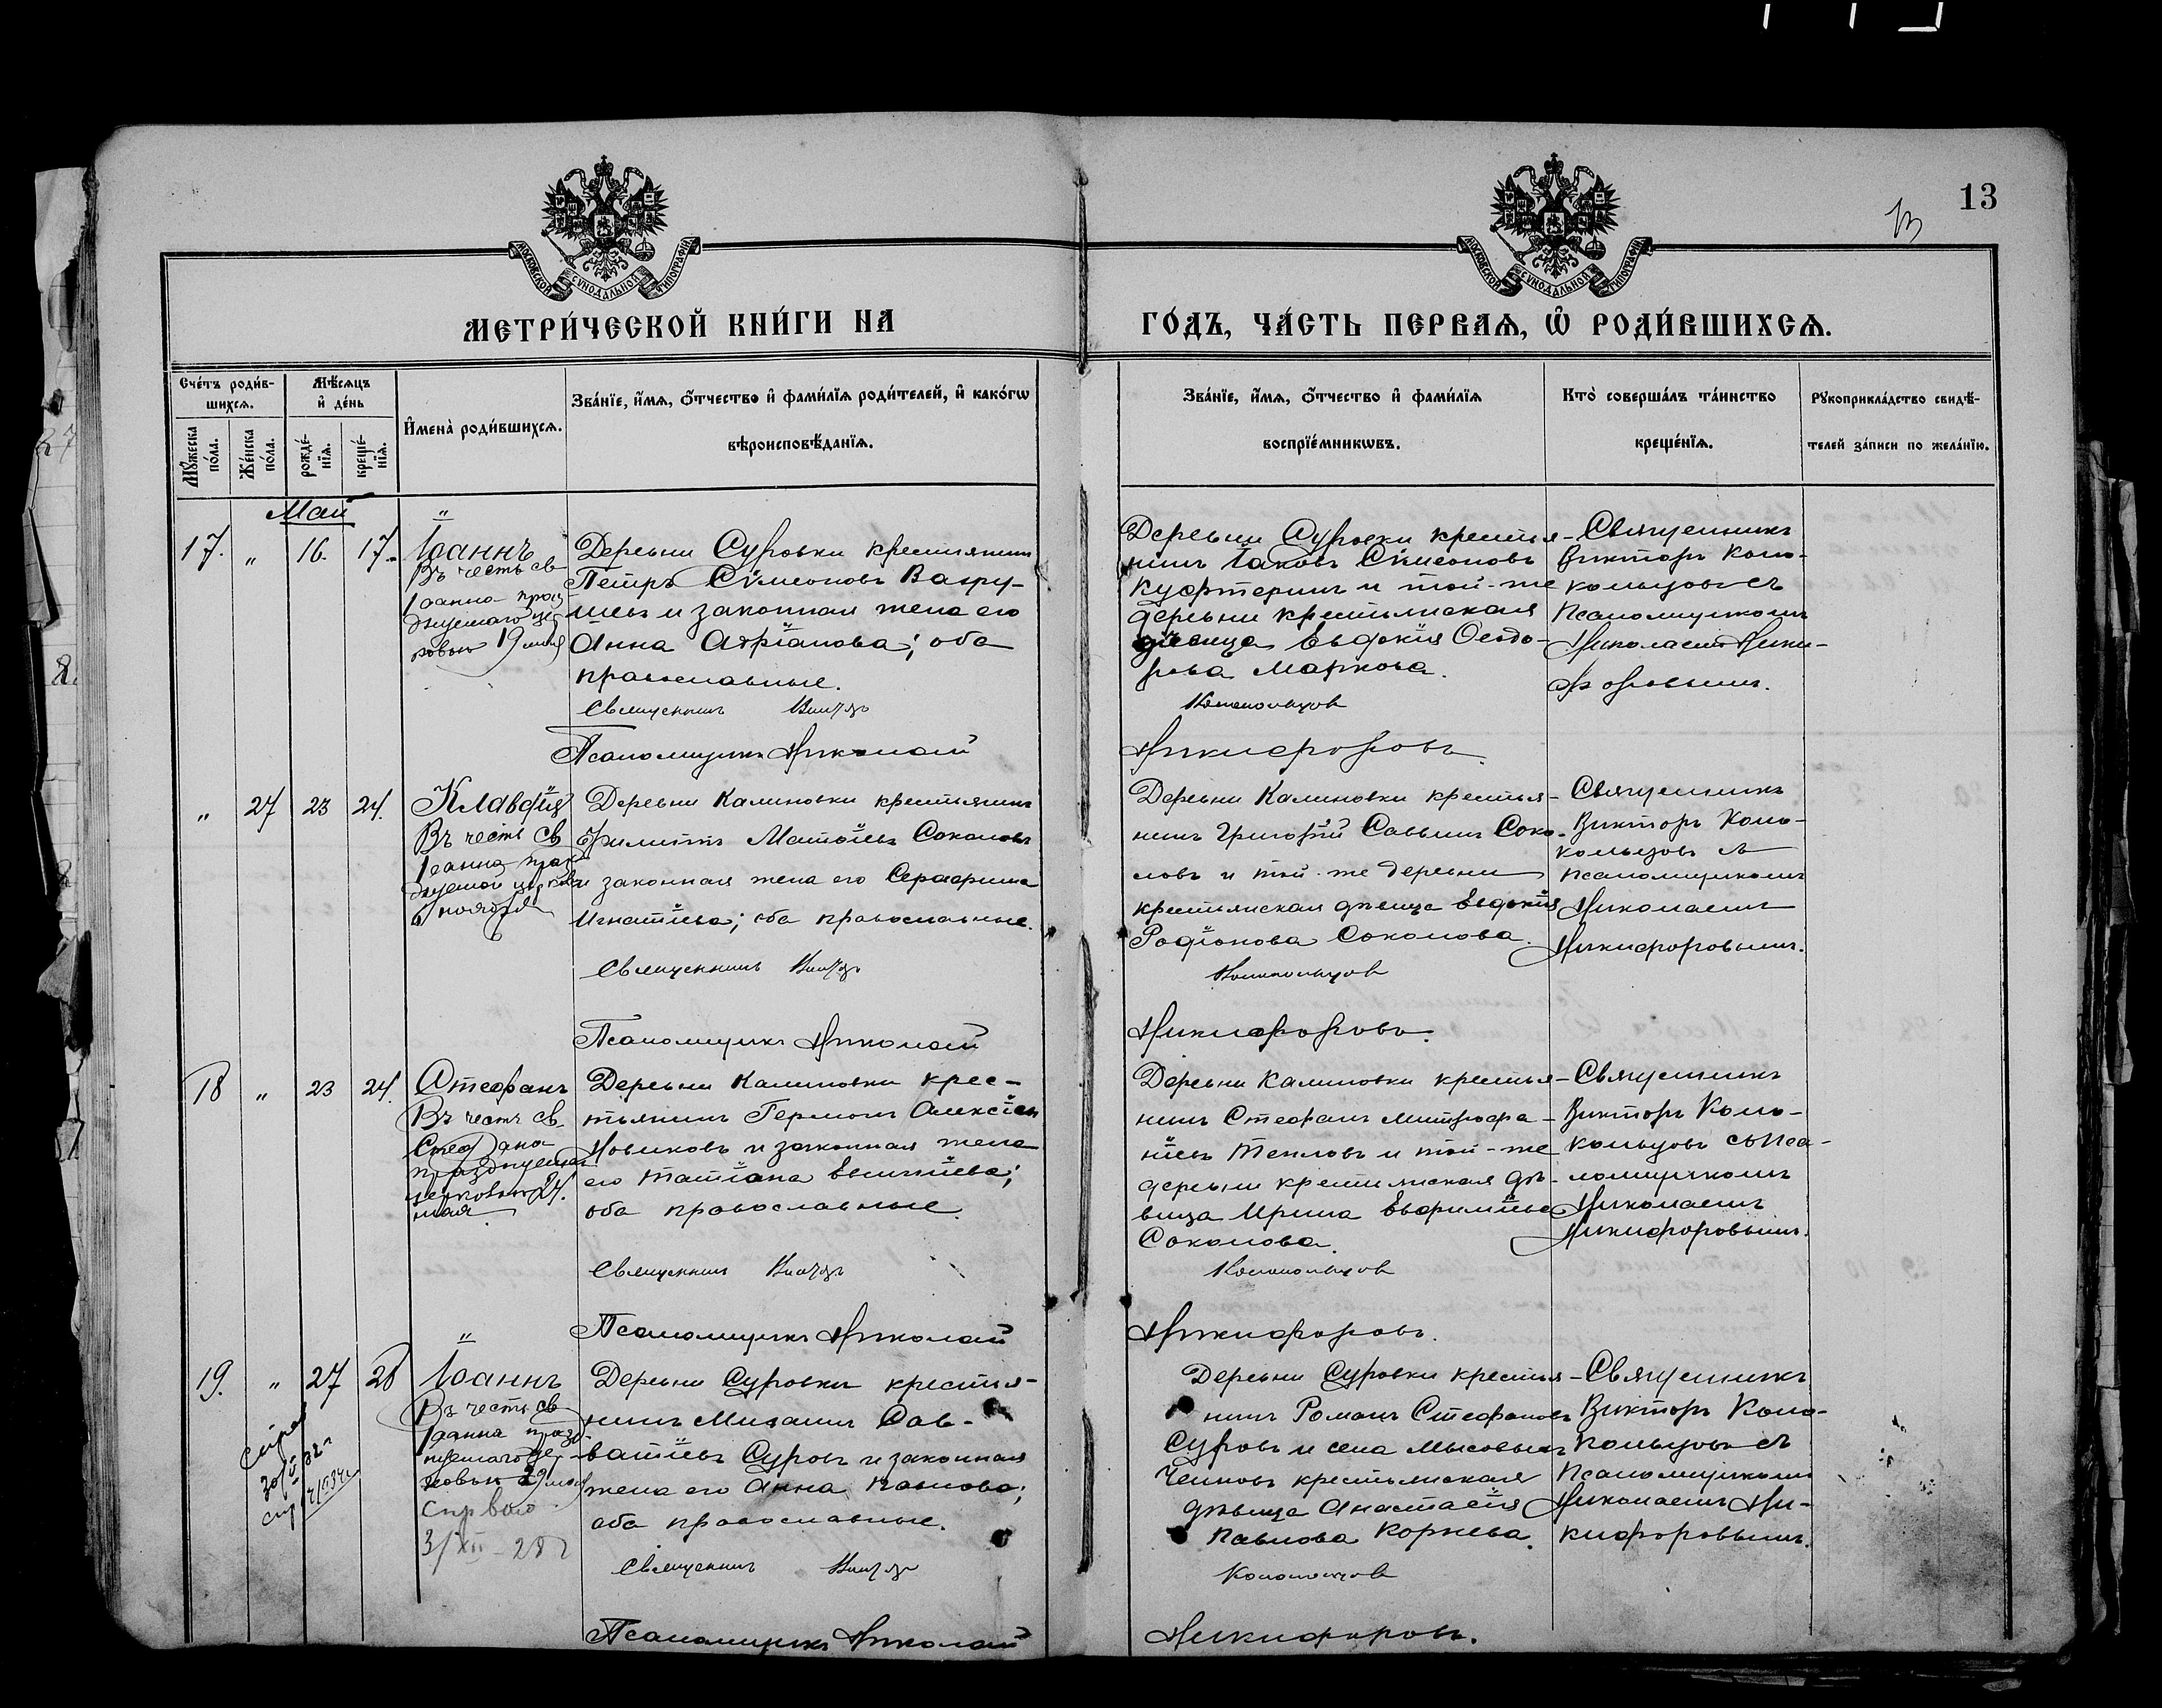 13
13
МОСКОВСКОЙ СѴНОДАЛЬНОЙ ТИПОГРАФІИ
МОСКОВСКОЙ СѴНОДАЛЬНОЙ ТИПОГРАФІИ
МЕТРИ́ЧЕСКОЙ КНИ́ГИ НА
ГО́ДЪ, ЧА́СТЬ ПЕРВАѦ, Ѽ РОДИ́ВШИХСѦ.
Сче́тъ роди́в-
шихсѧ.
Мꙋжеска по́ла.
Же́нска по́ла.
Мѣ́сѧцъ
и҆ де́нь
рожде́-
нїѧ.
креще́-
нїѧ.
И҆мена̀ роди́вшихсѧ.
Зва́нїе, и҆́мѧ, ѻ҆́тчество и҆ фами́лїѧ роди́телей, и҆ како́гѡ
вѣроисповѣ́данїѧ.
Зва́нїе, и҆́мѧ, ѻ҆́тчество и҆ фами́лїѧ
воспрїе́мникѡвъ.
Кто̀ соверша́лъ та́инство
креще́нїѧ.
Рꙋкоприкла́дство свидѣ́-
телей за́писи по жела́нїю.
Май
17. " 16. 17.
Іоаннъ
Въ честь св
Іоанна празд
днуемаго цер
ковью 19 мая
Деревни Суровки крестьянинъ
Петръ Сімеоновъ Вахру-
шевъ и законная жена его
Анна Адріанова; оба
православные.
Священникъ Викторъ
Псаломщикъ Николай
Деревни Суровки крестья-
нинъ Іаковъ Сімеоновъ
Куфтеринъ и той-же
деревни крестьянская
дѣвица Евдокія Ѳеодо-
рова Маркова.
Колокольцовъ
Никифоровъ.
Священникъ
Викторъ Коло-
кольцовъ съ
Псаломщикомъ
Николаемъ Ники-
форовымъ.
" 27 23 24.
Клавдія
Въ честь св
Іоанна праз
днуемой церковью
6 ноября
Деревни Калиновки крестьянинъ
Филиппъ Матѳіевъ Соколовъ
и законная жена его Серафима
Игнатіева; оба православные.
Священникъ Викторъ
Псаломщикъ Николай
Деревни Калиновки крестья-
нинъ Григорій Саввинъ Соко-
ловъ и той-же деревни
крестьянская дѣвица Евдокія
Родіонова Соколова.
Колокольцовъ
Никифоровъ.
Священникъ
Викторъ Коло-
кольцовъ съ
псаломщикомъ
Николаемъ
Никифоровымъ.
18 " 23 24.
Стефанъ
Въ честь св.
Стефана
празднуемаго
церковью 24.
мая.
Деревни Калиновки крес-
тьянинъ Германъ Алексіевъ
Новиковъ и законная жена
его Татіана Евгеніева;
оба православные.
Священникъ Викторъ
Псаломщикъ Николай
Деревни Калиновки крестья-
нинъ Стефанъ Митрофа-
ніевъ Тепловъ и той-же
деревни крестьянская дѣ-
вица Ирина Евфиміева
Соколова.
Колокольцовъ
Никифоровъ.
Священникъ
Викторъ Коло-
кольцовъ съ Пса-
ломщикомъ
Николаемъ
Никифоровымъ.
19. " 27 28
Іоаннъ
Въ честь св
Іоанна празд-
нуемаго цер-
ковью 29 мая
3/XII-28 г
Деревни Суровки крестья-
нинъ Михаилъ Сав-
ватіевъ Суровъ и законная
жена его Анна Павлова;
оба православные.
Священникъ Викторъ
Псаломщикъ Николай
Деревни Суровки крестья-
нинъ Романъ Стефановъ
Суровъ и села Мысовыхъ
Челновъ крестьянская
дѣвица Анастасія
Павлова Корнева.
Колокольцовъ
Никифоровъ.
Священникъ
Викторъ Коло-
кольцовъ съ
Псаломщикомъ
Николаемъ Ни-
кифоровымъ.